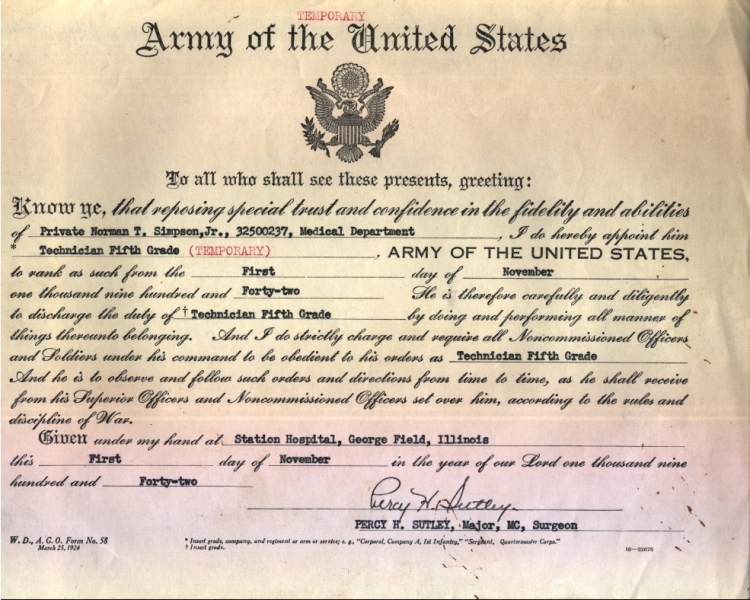 TEMPORARY
Army of the United States
To all who shall see these presents, greeting:
Know ye, that reposing special trust and confidence in the fidelity and abilities
of Private Norman T. Simpson,Jr., 32500237, Medical Department , I do hereby appoint him
* Technician Fifth Grade (TEMPORARY) , ARMY OF THE UNITED STATES,
to rank as such from the First day of November
one thousand nine hundred and Forty-two He is therefore carefully and diligently
to discharge the duty of † Technician Fifth Grade by doing and performing all manner of
things thereunto belonging. And I do strictly charge and require all Noncommissioned Officers
and Soldiers under his command to be obedient to his orders as Technician Fifth Grade
And he is to observe and follow such orders and directions from time to time, as he shall receive
from his Superior Officers and Noncommissioned Officers set over him, according to the rules and
discipline of War.
Given under my hand at Station Hospital, George Field, Illinois
this First day of November in the year of our Lord one thousand nine
hundred and Forty-two
Percy H. Sutley
PERCY H. SUTLEY, Major, MC, Surgeon
W. D., A. G. O. Form No. 58
March 25, 1924
* Insert grade, company, and regiment or arm or service; e. g., "Corporal, Company A, 1st Infantry," "Sergeant, Quartermaster Corps."
† Insert grade.
16—22676